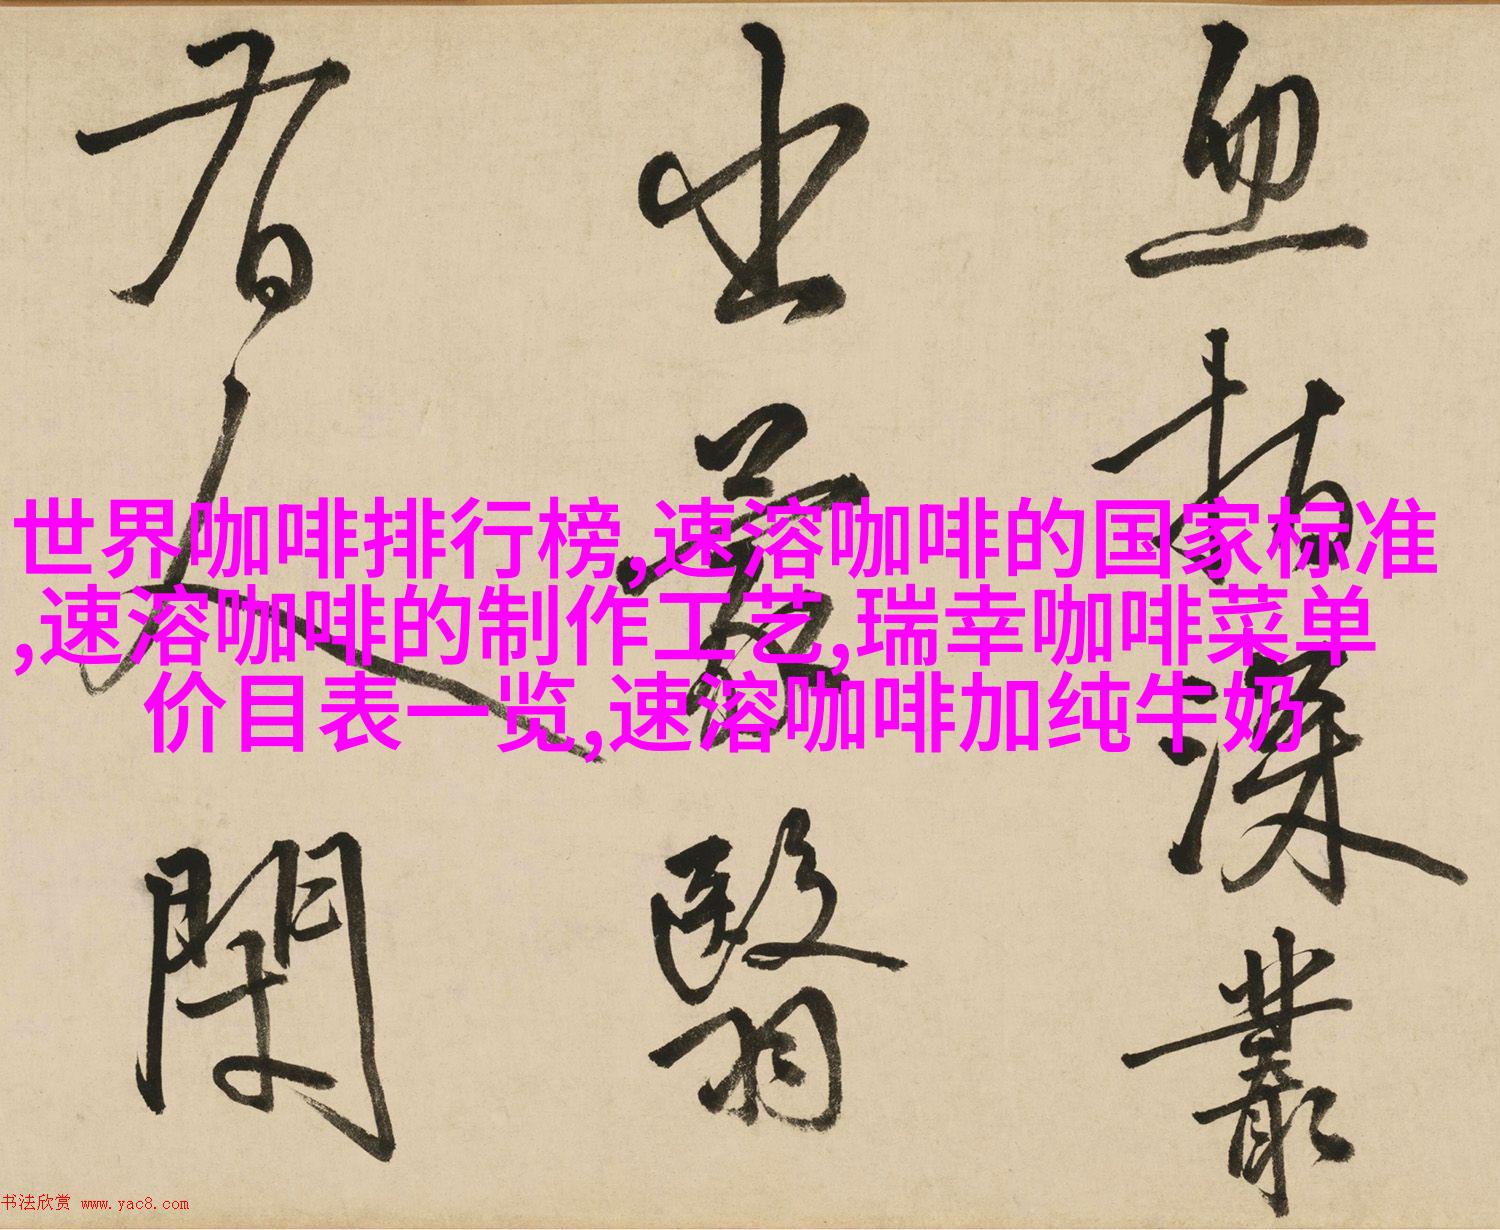 世界咖啡排行榜,速溶咖啡的国家标准
,速溶咖啡的制作工艺,瑞幸咖啡菜单
价目表一览,速溶咖啡加纯牛奶
血指深叢
出蒙翳
人
书法欣赏 www.yac8.com